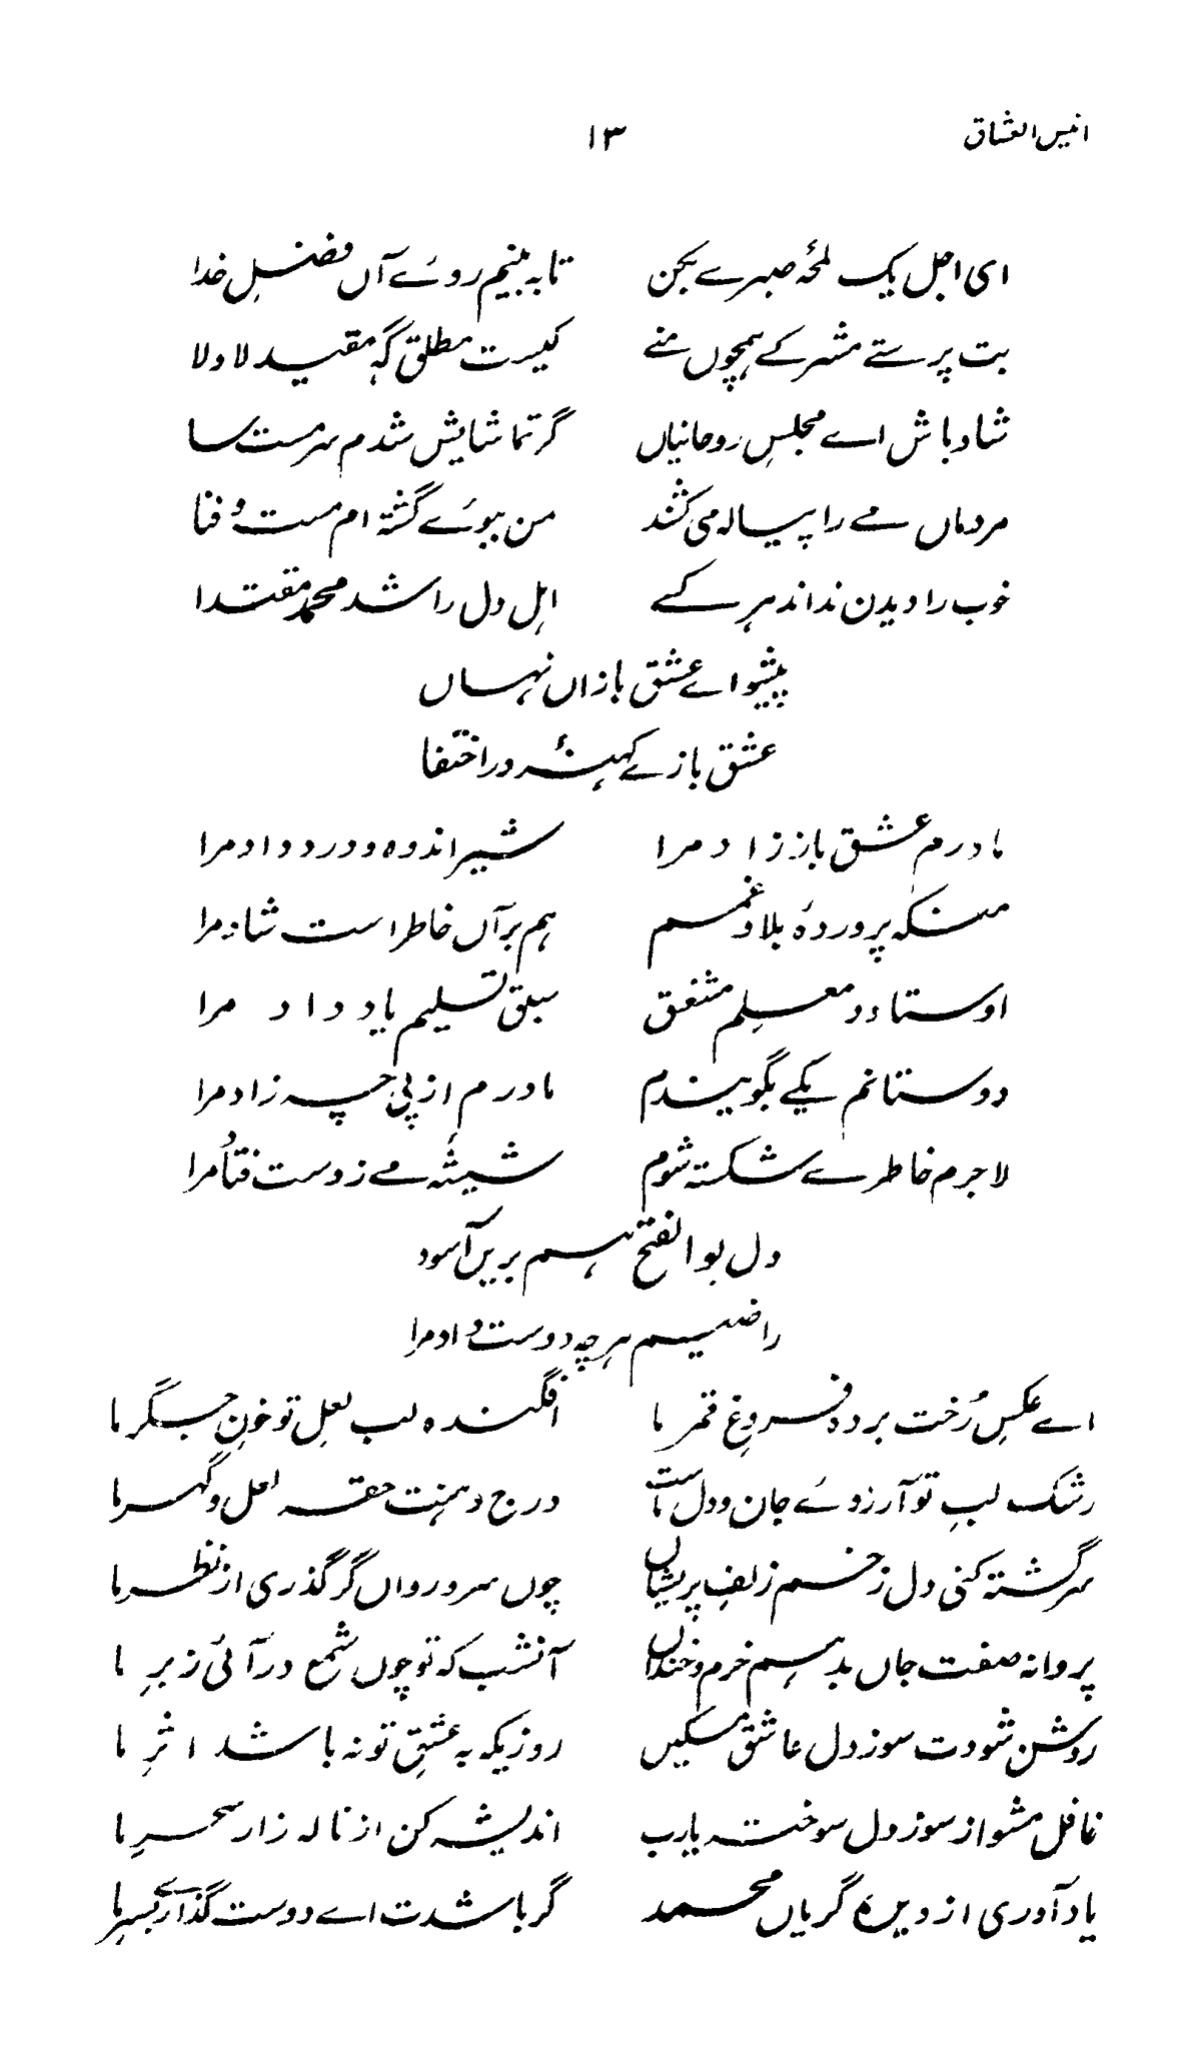 انیس العشاق ۱۳
ای اجل یک لمحۂ صبرے بکن تا بہ بینم روۓ آں فضلِ خدا
بت پرستے مشرکے ہمچوں منے کیست مطلق گہ مقید لا ولا
شاد باش اے مجلسِ روحانیاں گر تماشایش شدم سرمست سا
مردماں مے را پیالہ می کشند من ببوۓ گشتہ ام مست و فنا
خوب را دیدن نداند ہر کسے اہل دل را شد محمد مقتدا
پیشواے عشق بازاں نہاں
عشق بازے کہنۂ در اختفا
مادرم عشق باز زاد مرا شیر اندوہ و درد داد مرا
منکہ پروردۂ بلا و غمم ہم برآں خاطر است شاد مرا
اوستاد و معلم مشفق سبق تسلیم یاد داد مرا
دوستانم یکے بگویندم مادرم از پئ چہ زاد مرا
لاجرم خاطرے شکستہ شوم شیشۂ مے ز دست فتاد مرا
دل بوالفتح ہم بریں آسود
راضیم ہرچہ دوست داد مرا
اے عکسِ رُخت بردہ فروغِ قمر ما افگندہ لب لعلِ تو خونِ جگر ما
رشک لبِ تو آرزوۓ جان و دل ماست درج دہنت حقہ لعل و گہر ما
سرگشتہ کنی دل ز خم زلفِ پریشاں چوں سرو رواں گر گذری از نظر ما
پروانہ صفت جاں بدہم خرم و خنداں آنشب کہ تو چوں شمع درآئی ز برِ ما
روشن شودت سوز دل عاشق مسکیں روزیکہ بہ عشقِ تو نہ باشد اثرِ ما
غافل مشو از سوز دل سوختہ یارب اندیشہ کن از نالہ زار سحرِ ما
یاد آوری از دیدۂ گریاں محمد گر باشدت اے دوست گذارے بسر ما